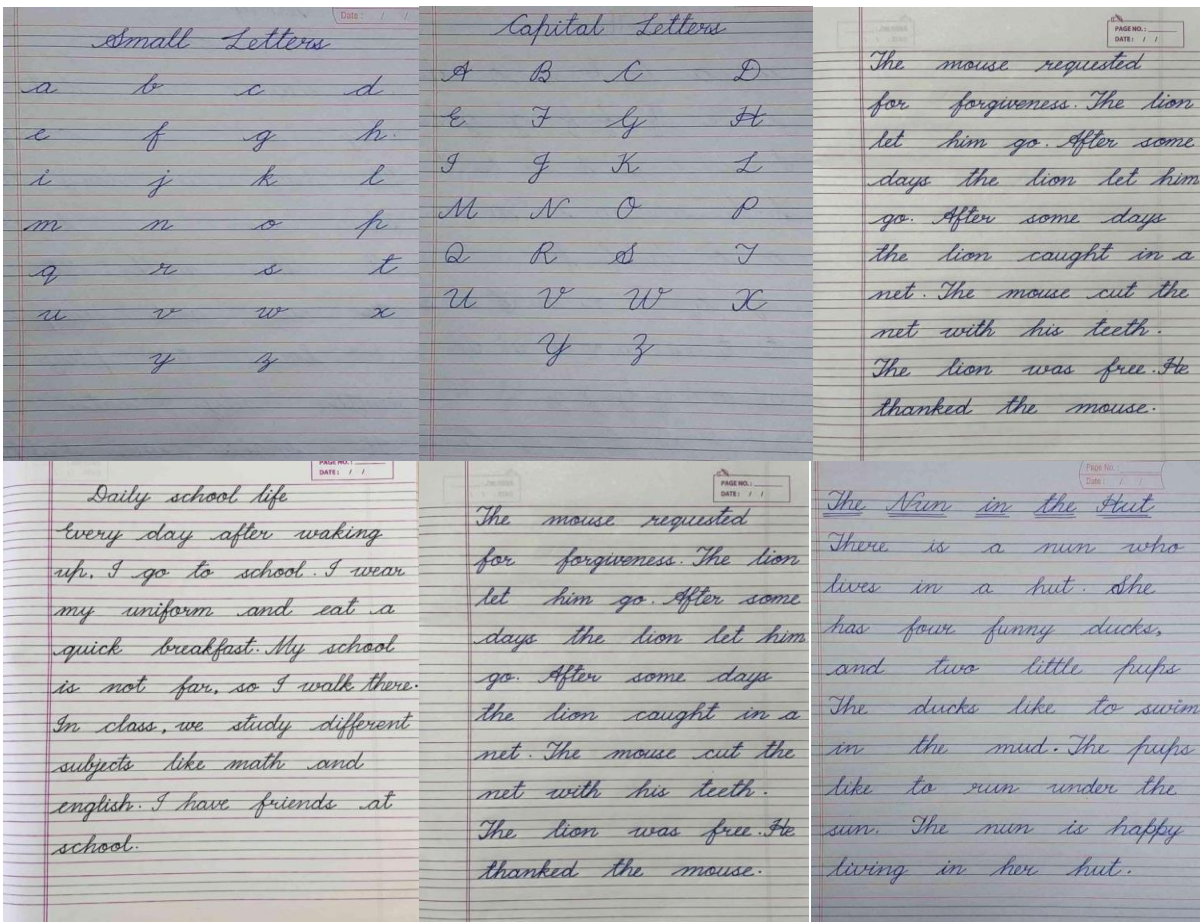 Date : / /
Small Letters
a b c d
e f g h.
i j k l
m n o p
q r s t
u v w x
y z
Capital Letters
A B C D
E F G H
I J K L
M N O P
Q R S T
U V W X
Y Z
PAGE NO. :
DATE : / /
The mouse requested
for forgiveness. The lion
let him go. After some
days the lion let him
go. After some days
the lion caught in a
net. The mouse cut the
net with his teeth.
The lion was free. He
thanked the mouse.
PAGE NO. :
DATE : / /
Daily school life
Every day after waking
up, I go to school. I wear
my uniform and eat a
quick breakfast. My school
is not far, so I walk there.
In class, we study different
subjects like math and
english. I have friends at
school.
PAGE NO. :
DATE : / /
The mouse requested
for forgiveness. The lion
let him go. After some
days the lion let him
go. After some days
the lion caught in a
net. The mouse cut the
net with his teeth.
The lion was free. He
thanked the mouse.
Page No.
Date : / /
The Nun in the Hut
There is a nun who
lives in a hut. She
has four funny ducks,
and two little pups
The ducks like to swim
in the mud. The pups
like to run under the
sun. The nun is happy
living in her hut.